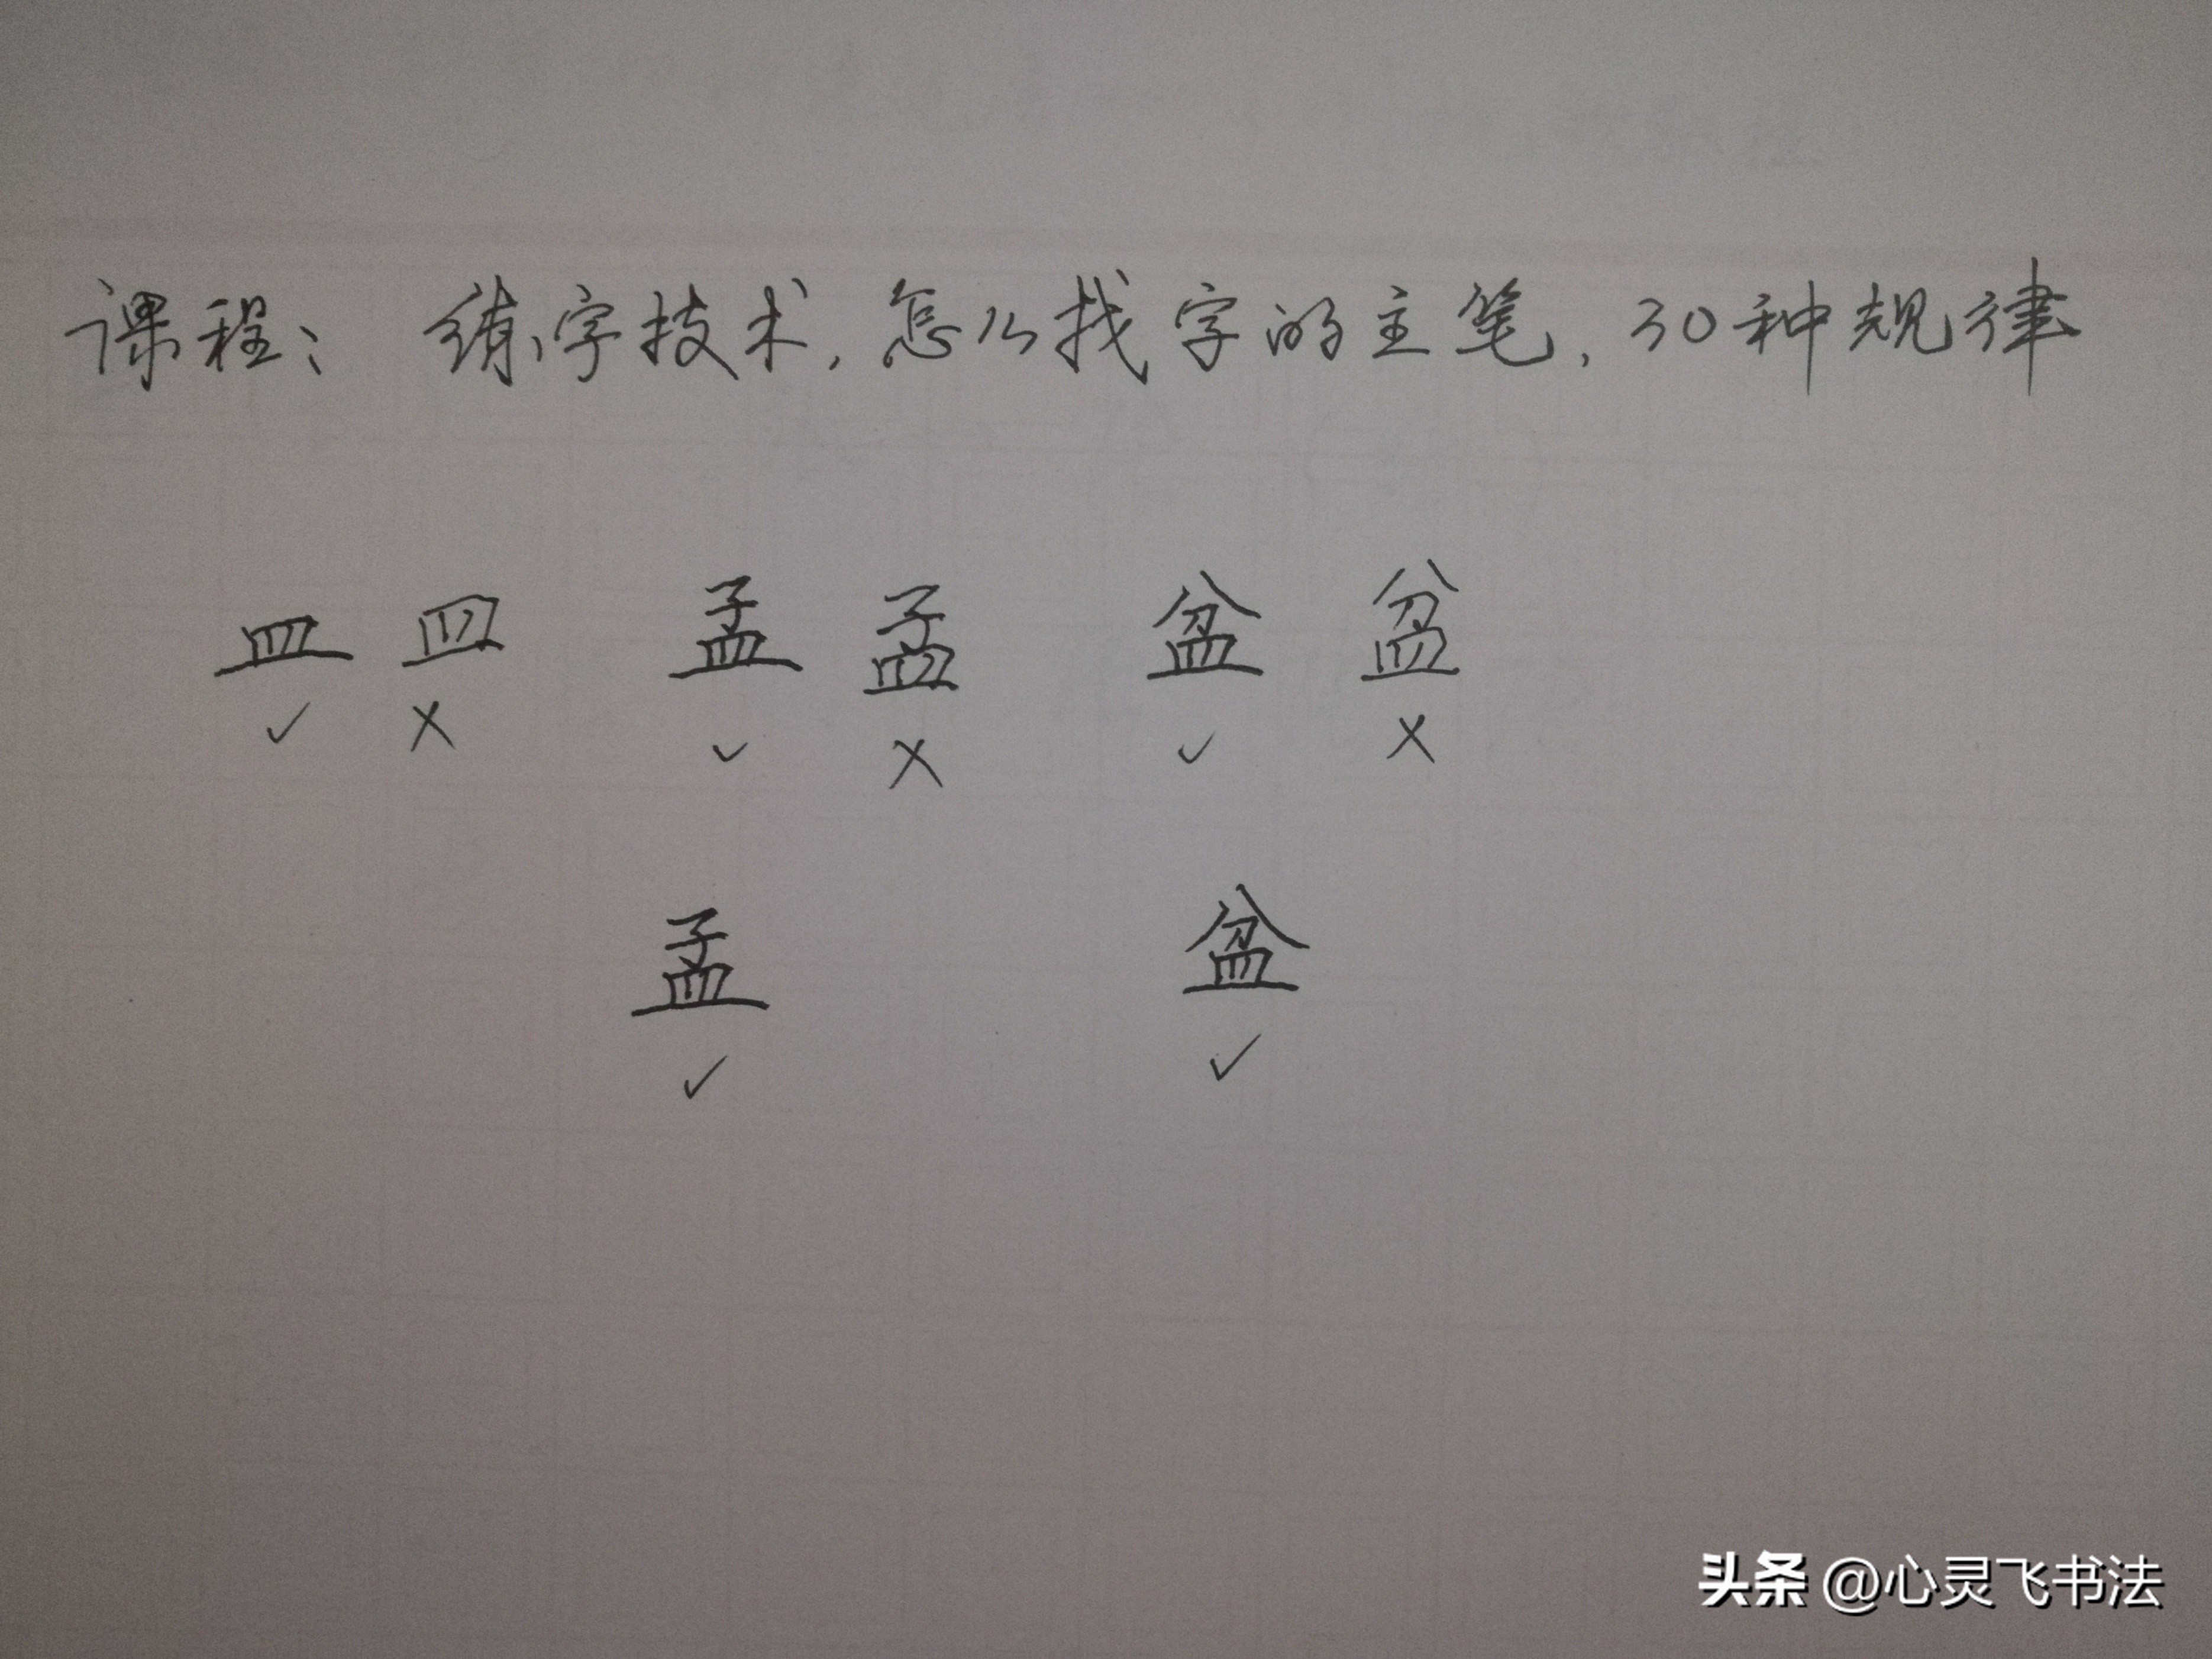 课程：练字技术，怎么找字的主笔，30种规律
皿 皿 孟 孟 盆 盆
✓ ✗ ✓ ✗ ✓ ✗
孟 盆
✓ ✓
头条 @心灵飞书法